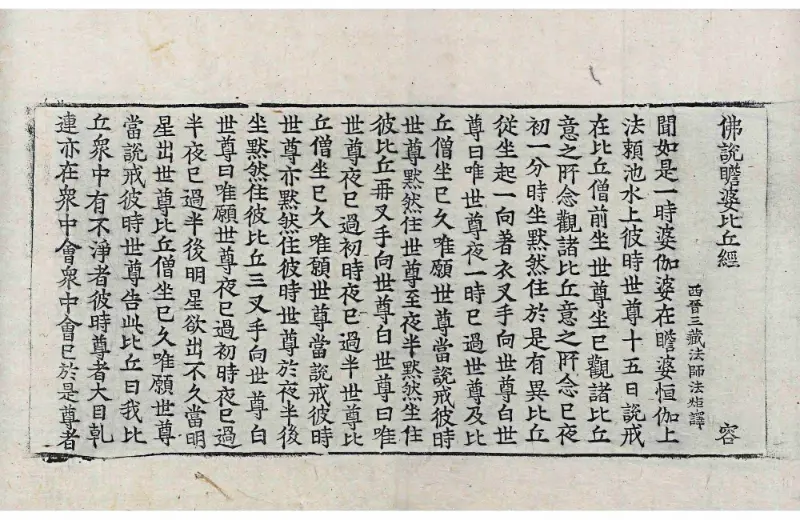 佛說瞻婆比丘經 容
西晉三藏法師法炬譯
聞如是一時婆伽婆在瞻婆恒伽上
法賴池水上彼時世尊十五日說戒
在比丘僧前坐世尊坐已觀諸比丘
意之所念觀諸比丘意之所念已夜
初一分時坐默然住於是有異比丘
從坐起一向著衣叉手向世尊白世
尊曰唯世尊夜一時已過世尊及比
丘僧坐已久唯願世尊當說戒彼時
世尊默然住世尊至夜半默然坐住
彼比丘再叉手向世尊白世尊曰唯
世尊夜已過初時夜已過半世尊比
丘僧坐已久唯願世尊當說戒彼時
世尊亦默然住彼時世尊於夜半後
坐默然住彼比丘三叉手向世尊白
世尊曰唯願世尊夜已過初時夜已過
半夜已過半後明星欲出不久當明
星出世尊比丘僧坐已久唯願世尊
當說戒彼時世尊告此比丘曰我比
丘衆中有不淨者彼時尊者大目乹
連亦在衆中會衆中會已於是尊者